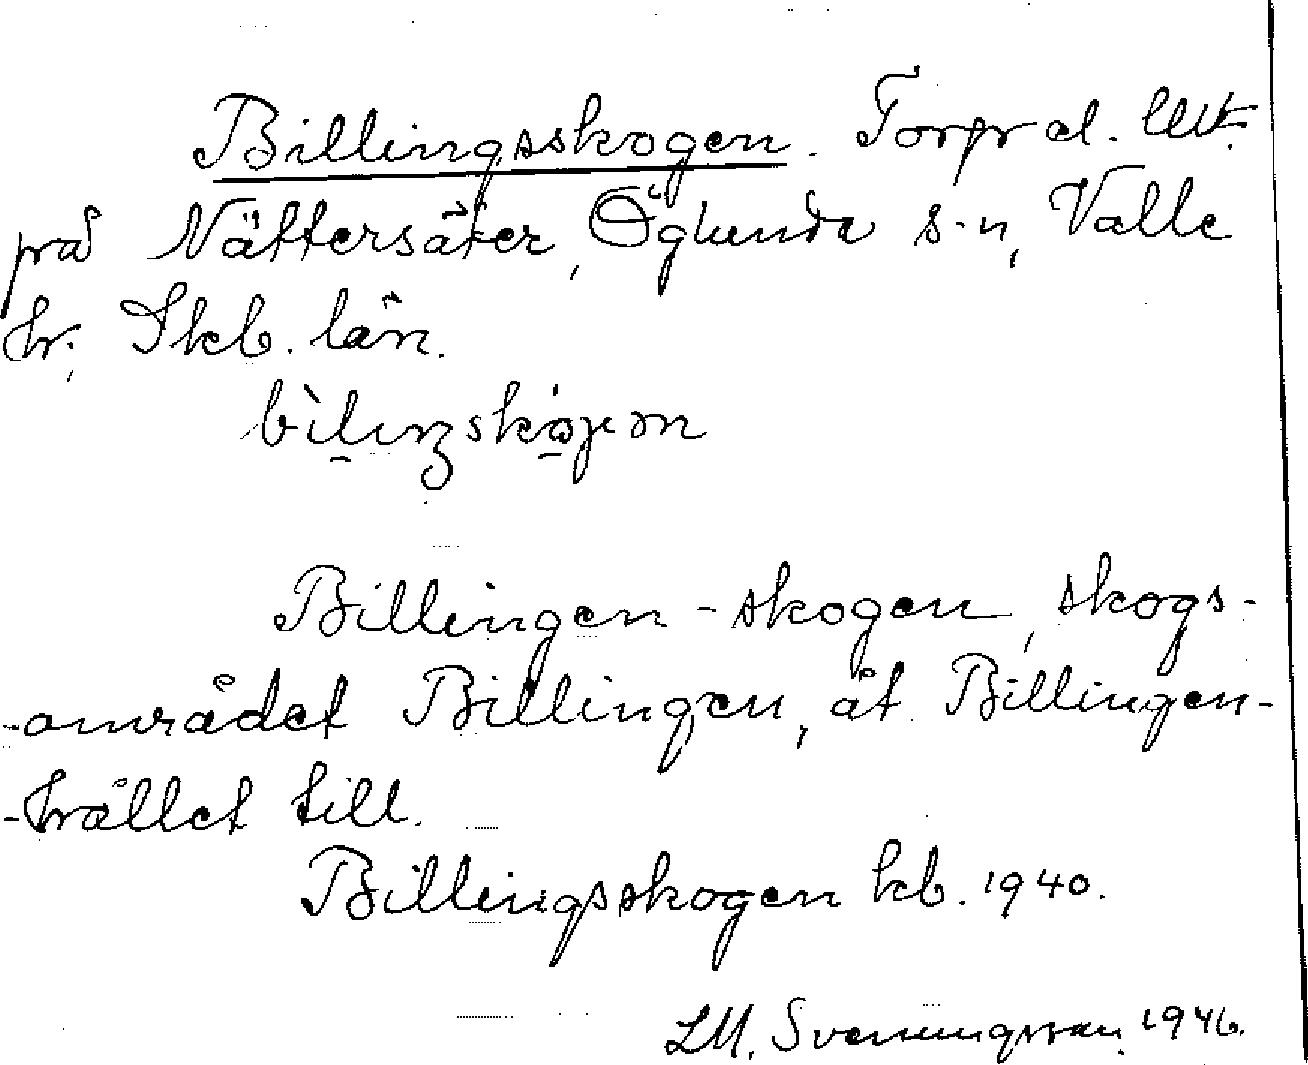 Billingsskogen. Torp al. Utt.
på Nättersäter, Öglunda s-n, Valle
hr; Skb. län.
bìlıŋskó̱gen
Billingen - skogen, skogs-
-området Billingen, åt Billingen-
-hållet till.
Billingsskogen kb. 1940.
LM. Svenungsson 1946.